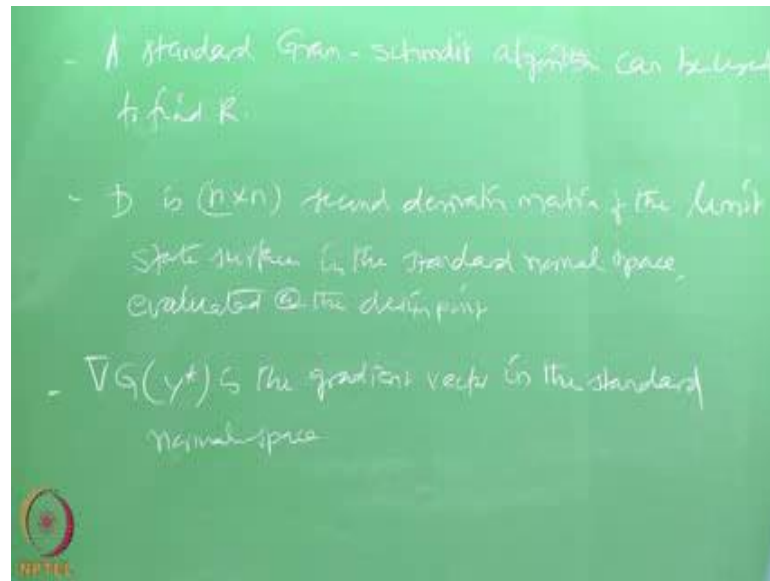 - A standard Gram-schmdit algorithm can be used
to find R.
- D is (n×n) second derivative matrix of the limit
state surface in the standard normal space,
evaluated @ the design point
- ∇G(y*) is the gradient vector in the standard
normal space
NPTEL